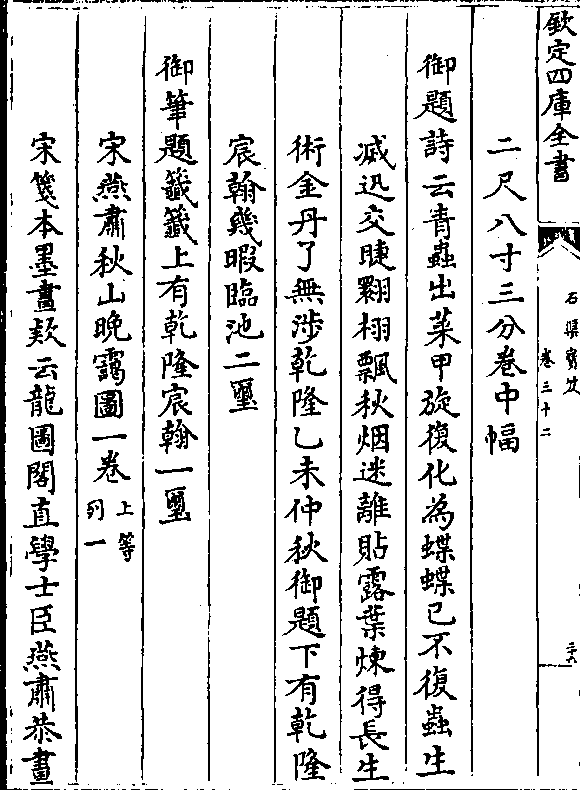 欽定四庫全書
石渠寶笈
卷三十二
二尺八寸三分卷中幅
御題詩云青蟲出菜甲旋復化為蝶蝶已不復蟲生
滅迅交睫翾栩飄秋烟迷離貼露葉煉得長生
術金丹了無涉乾隆乙未仲秋御題下有乾隆
宸翰幾暇臨池二璽
御筆題籤籤上有乾隆宸翰一璽
宋燕肅秋山晚靄圖一卷
上等
列一
宋箋本墨畫款云龍圖閣直學士臣燕肅恭畫